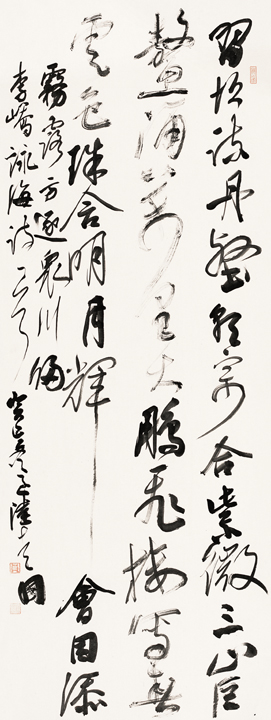 習坎疏丹壑朝宗合紫微三山巨
鼇涌萬里大鵬飛樓寫春
雲色珠含明月輝會因添
霧露方逐眾川歸
李嶠詠海詩 癸巳